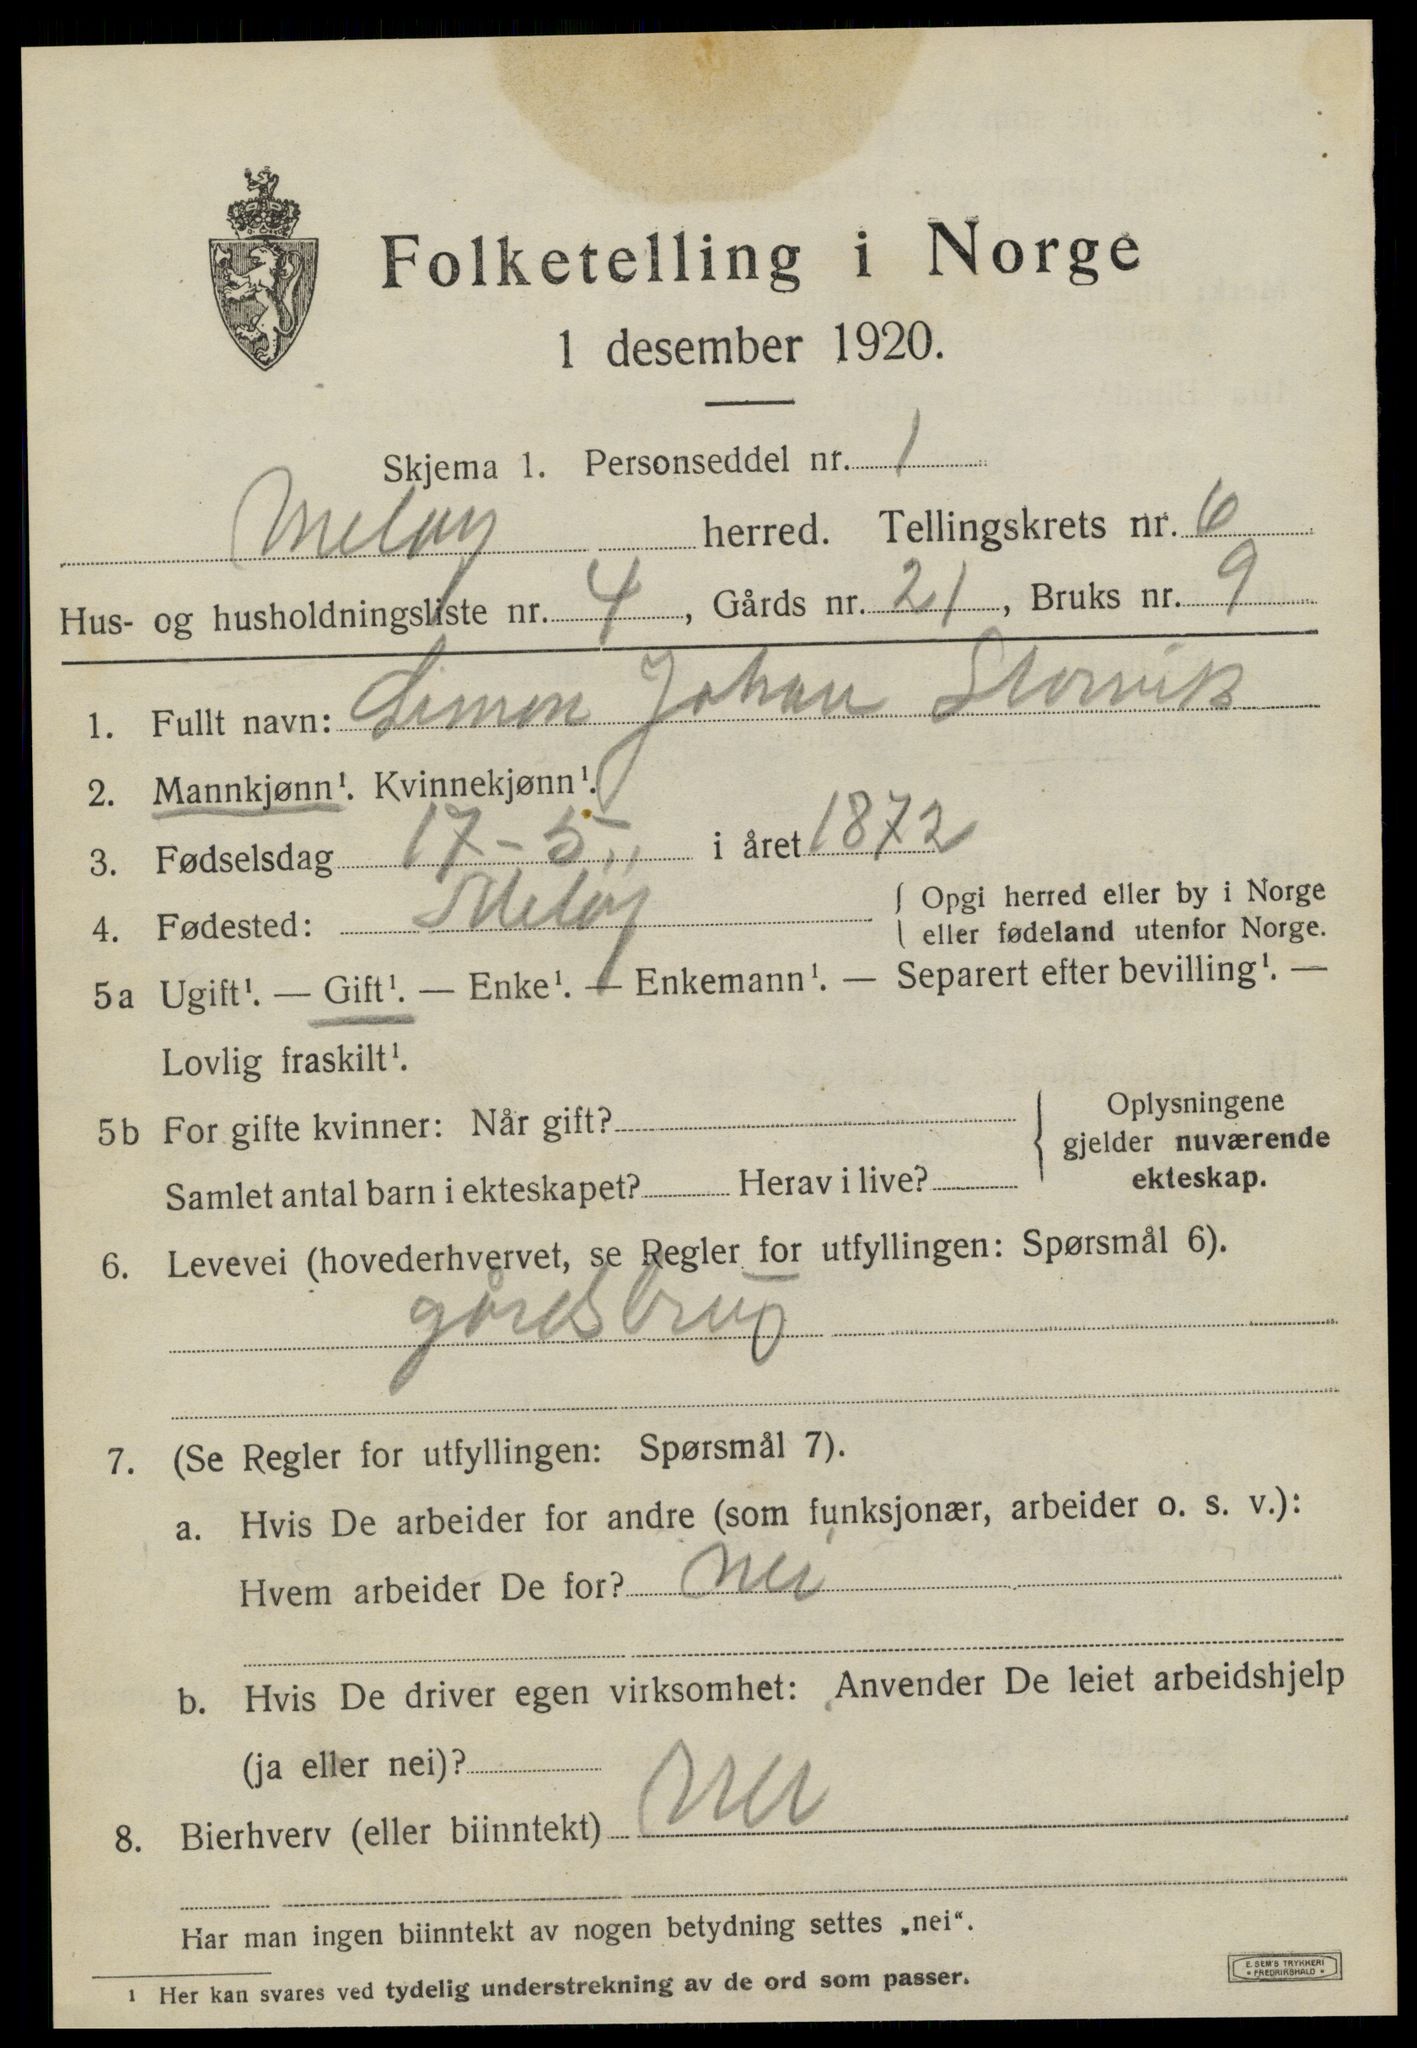 Folketelling i Norge
1 desember 1920.
Skjema 1. Personseddel nr. 1
Meløy herred. Tellingskrets nr. 6
Hus- og husholdningsliste nr. 4, Gårds nr. 21, Bruks nr. 9
1. Fullt navn: Simon Johan Storvik
2. Mannkjønn¹. Kvinnekjønn¹.
3. Fødselsdag 17-5 i året 1872
4. Fødested: Meløy { Opgi herred eller by i Norge
eller fødeland utenfor Norge.
5a Ugift¹. — Gift¹. — Enke¹. — Enkemann¹. — Separert efter bevilling¹. —
Lovlig fraskilt¹.
5b For gifte kvinner: Når gift?
Samlet antal barn i ekteskapet? Herav i live?
{ Oplysningene
gjelder nuværende
ekteskap.
6. Levevei (hovederhvervet, se Regler for utfyllingen: Spørsmål 6).
gårdsbrug
7. (Se Regler for utfyllingen: Spørsmål 7).
a. Hvis De arbeider for andre (som funksjonær, arbeider o. s. v.):
Hvem arbeider De for? Nei
b. Hvis De driver egen virksomhet: Anvender De leiet arbeidshjelp
(ja eller nei)?
8. Bierhverv (eller biinntekt) Nei
Har man ingen biinntekt av nogen betydning settes „nei“.
¹ Her kan svares ved tydelig understrekning av de ord som passer.
E. SEM'S TRYKKERI
• FREDRIKSHALD •